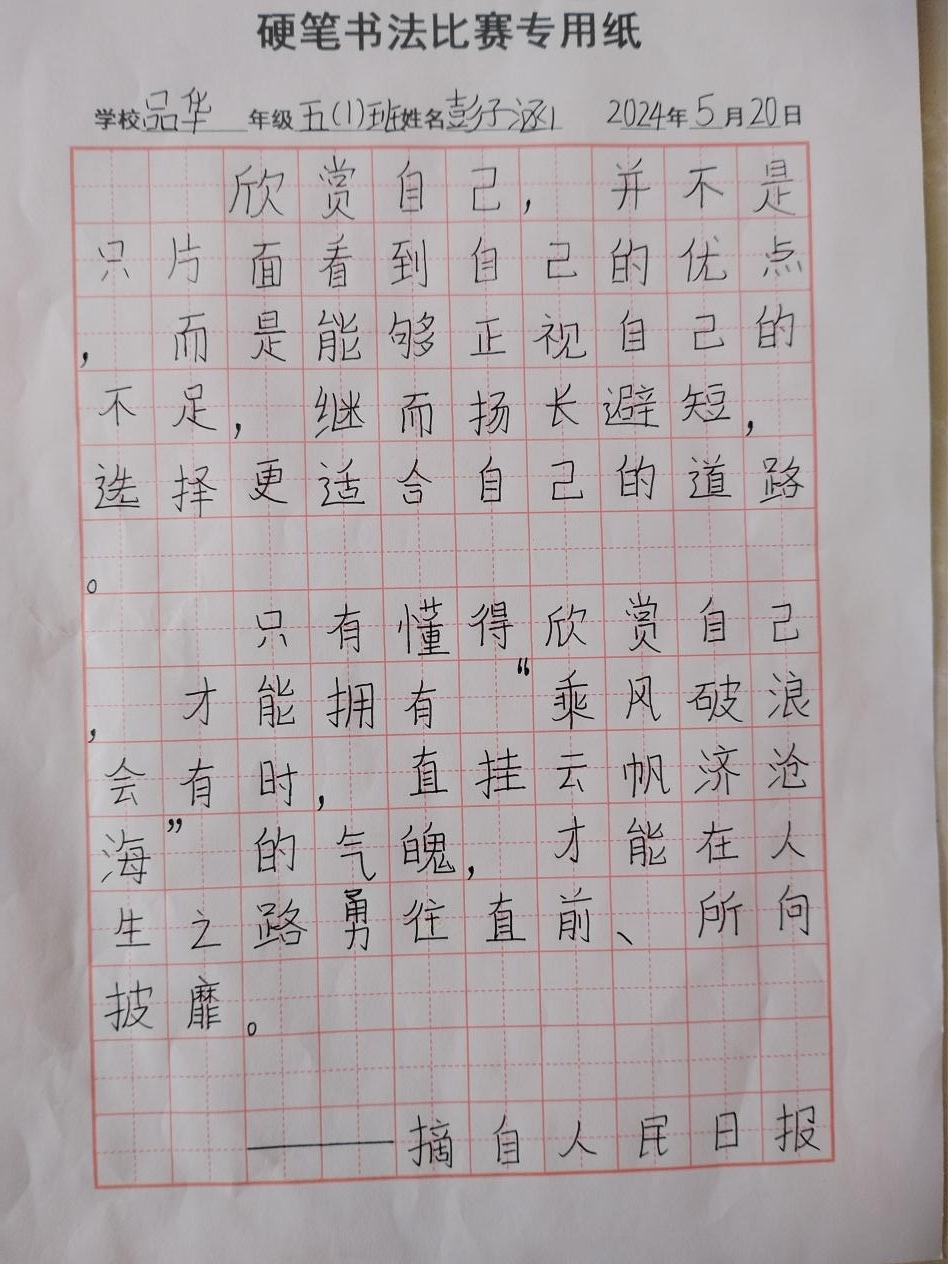 硬笔书法比赛专用纸
学校品华 年级五(1)班姓名彭子涵 2024年5月20日
欣赏自己，并不是
只片面看到自己的优点
，而是能够正视自己的
不足，继而扬长避短，
选择更适合自己的道路
。
只有懂得欣赏自己
，才能拥有“乘风破浪
会有时，直挂云帆济沧
海”的气魄，才能在人
生之路勇往直前、所向
披靡。
——摘自人民日报